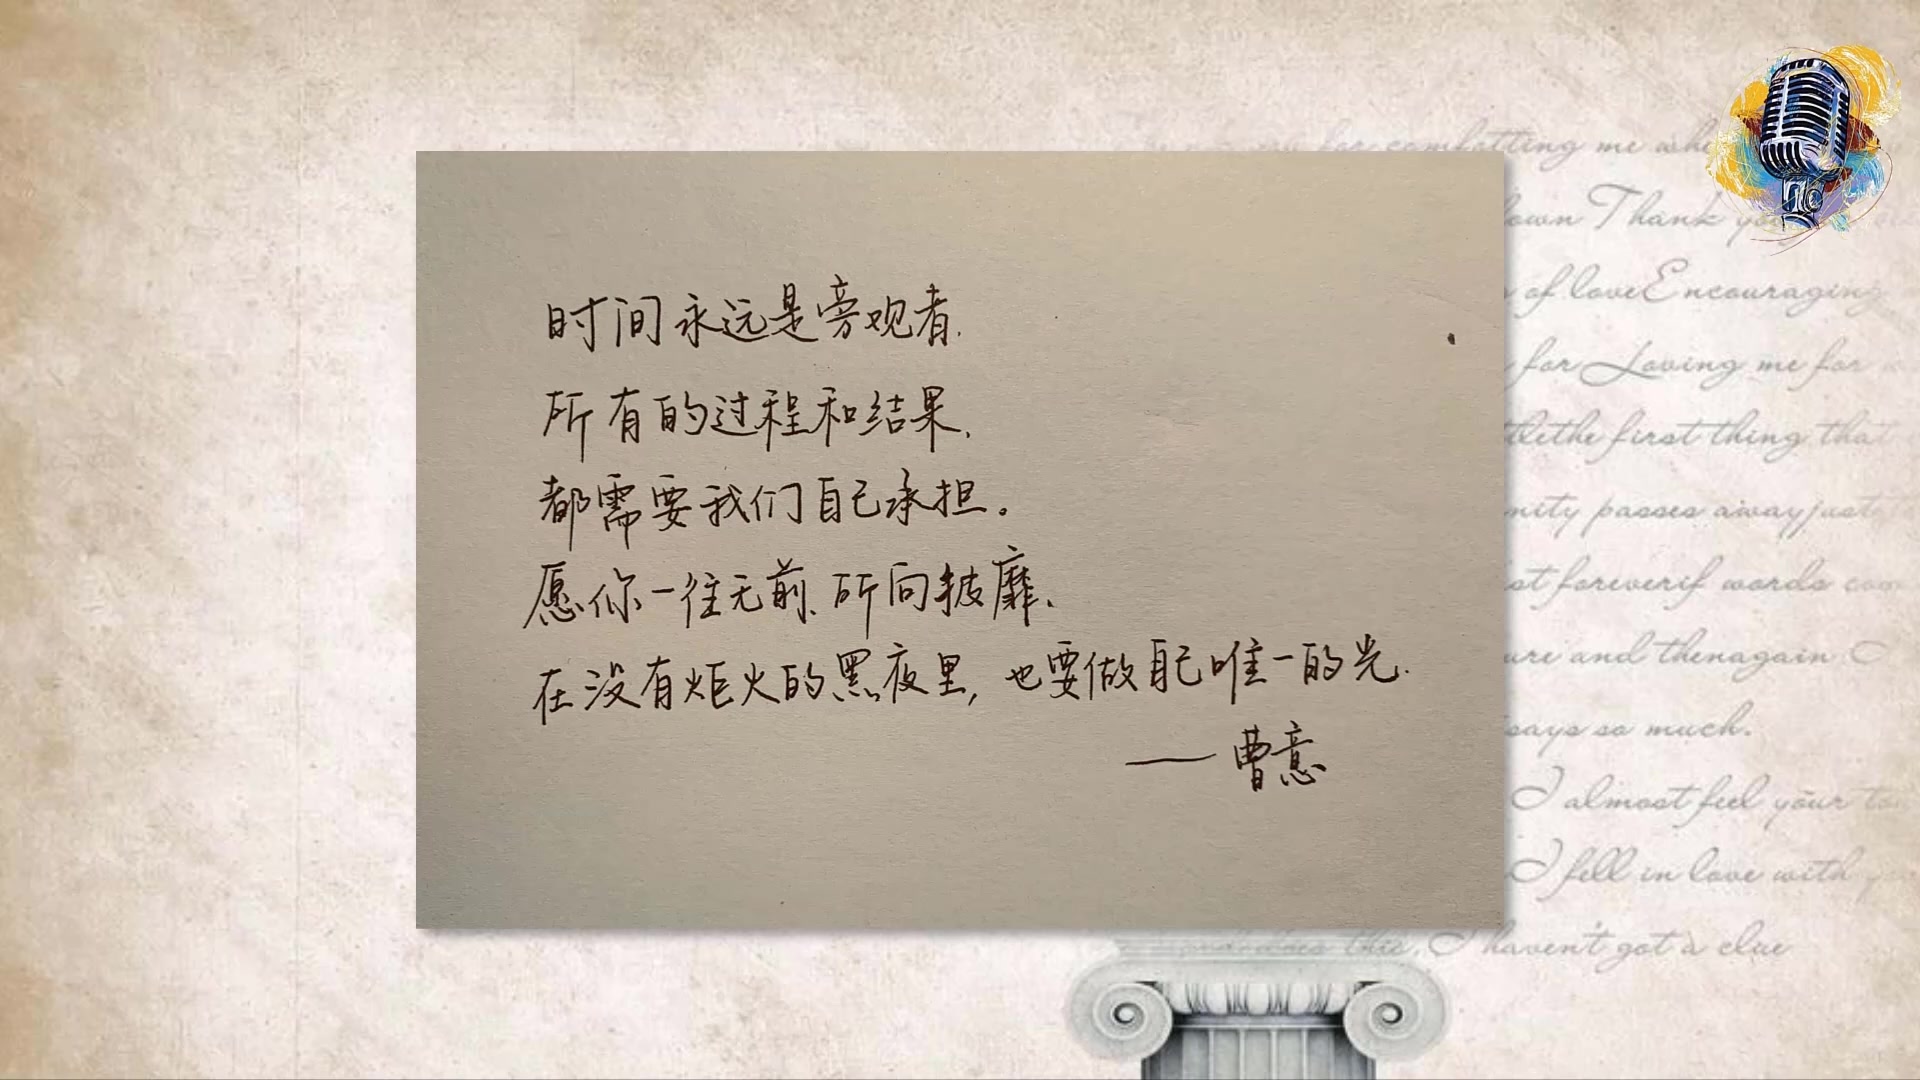 时间永远是旁观者.
所有的过程和结果,
都需要我们自己承担。
愿你一往无前、所向披靡、
在没有炬火的黑夜里,也要做自己唯一的光.
——曹意
for comforting me whe
own Thank yo
of loveEncouraging
for Loving me for
the first thing that
nity passes awayjust
st foreverif words com
ure and thenagain
says so much.
I almost feel your to
I fell in love with
does this, I haven't got a clue